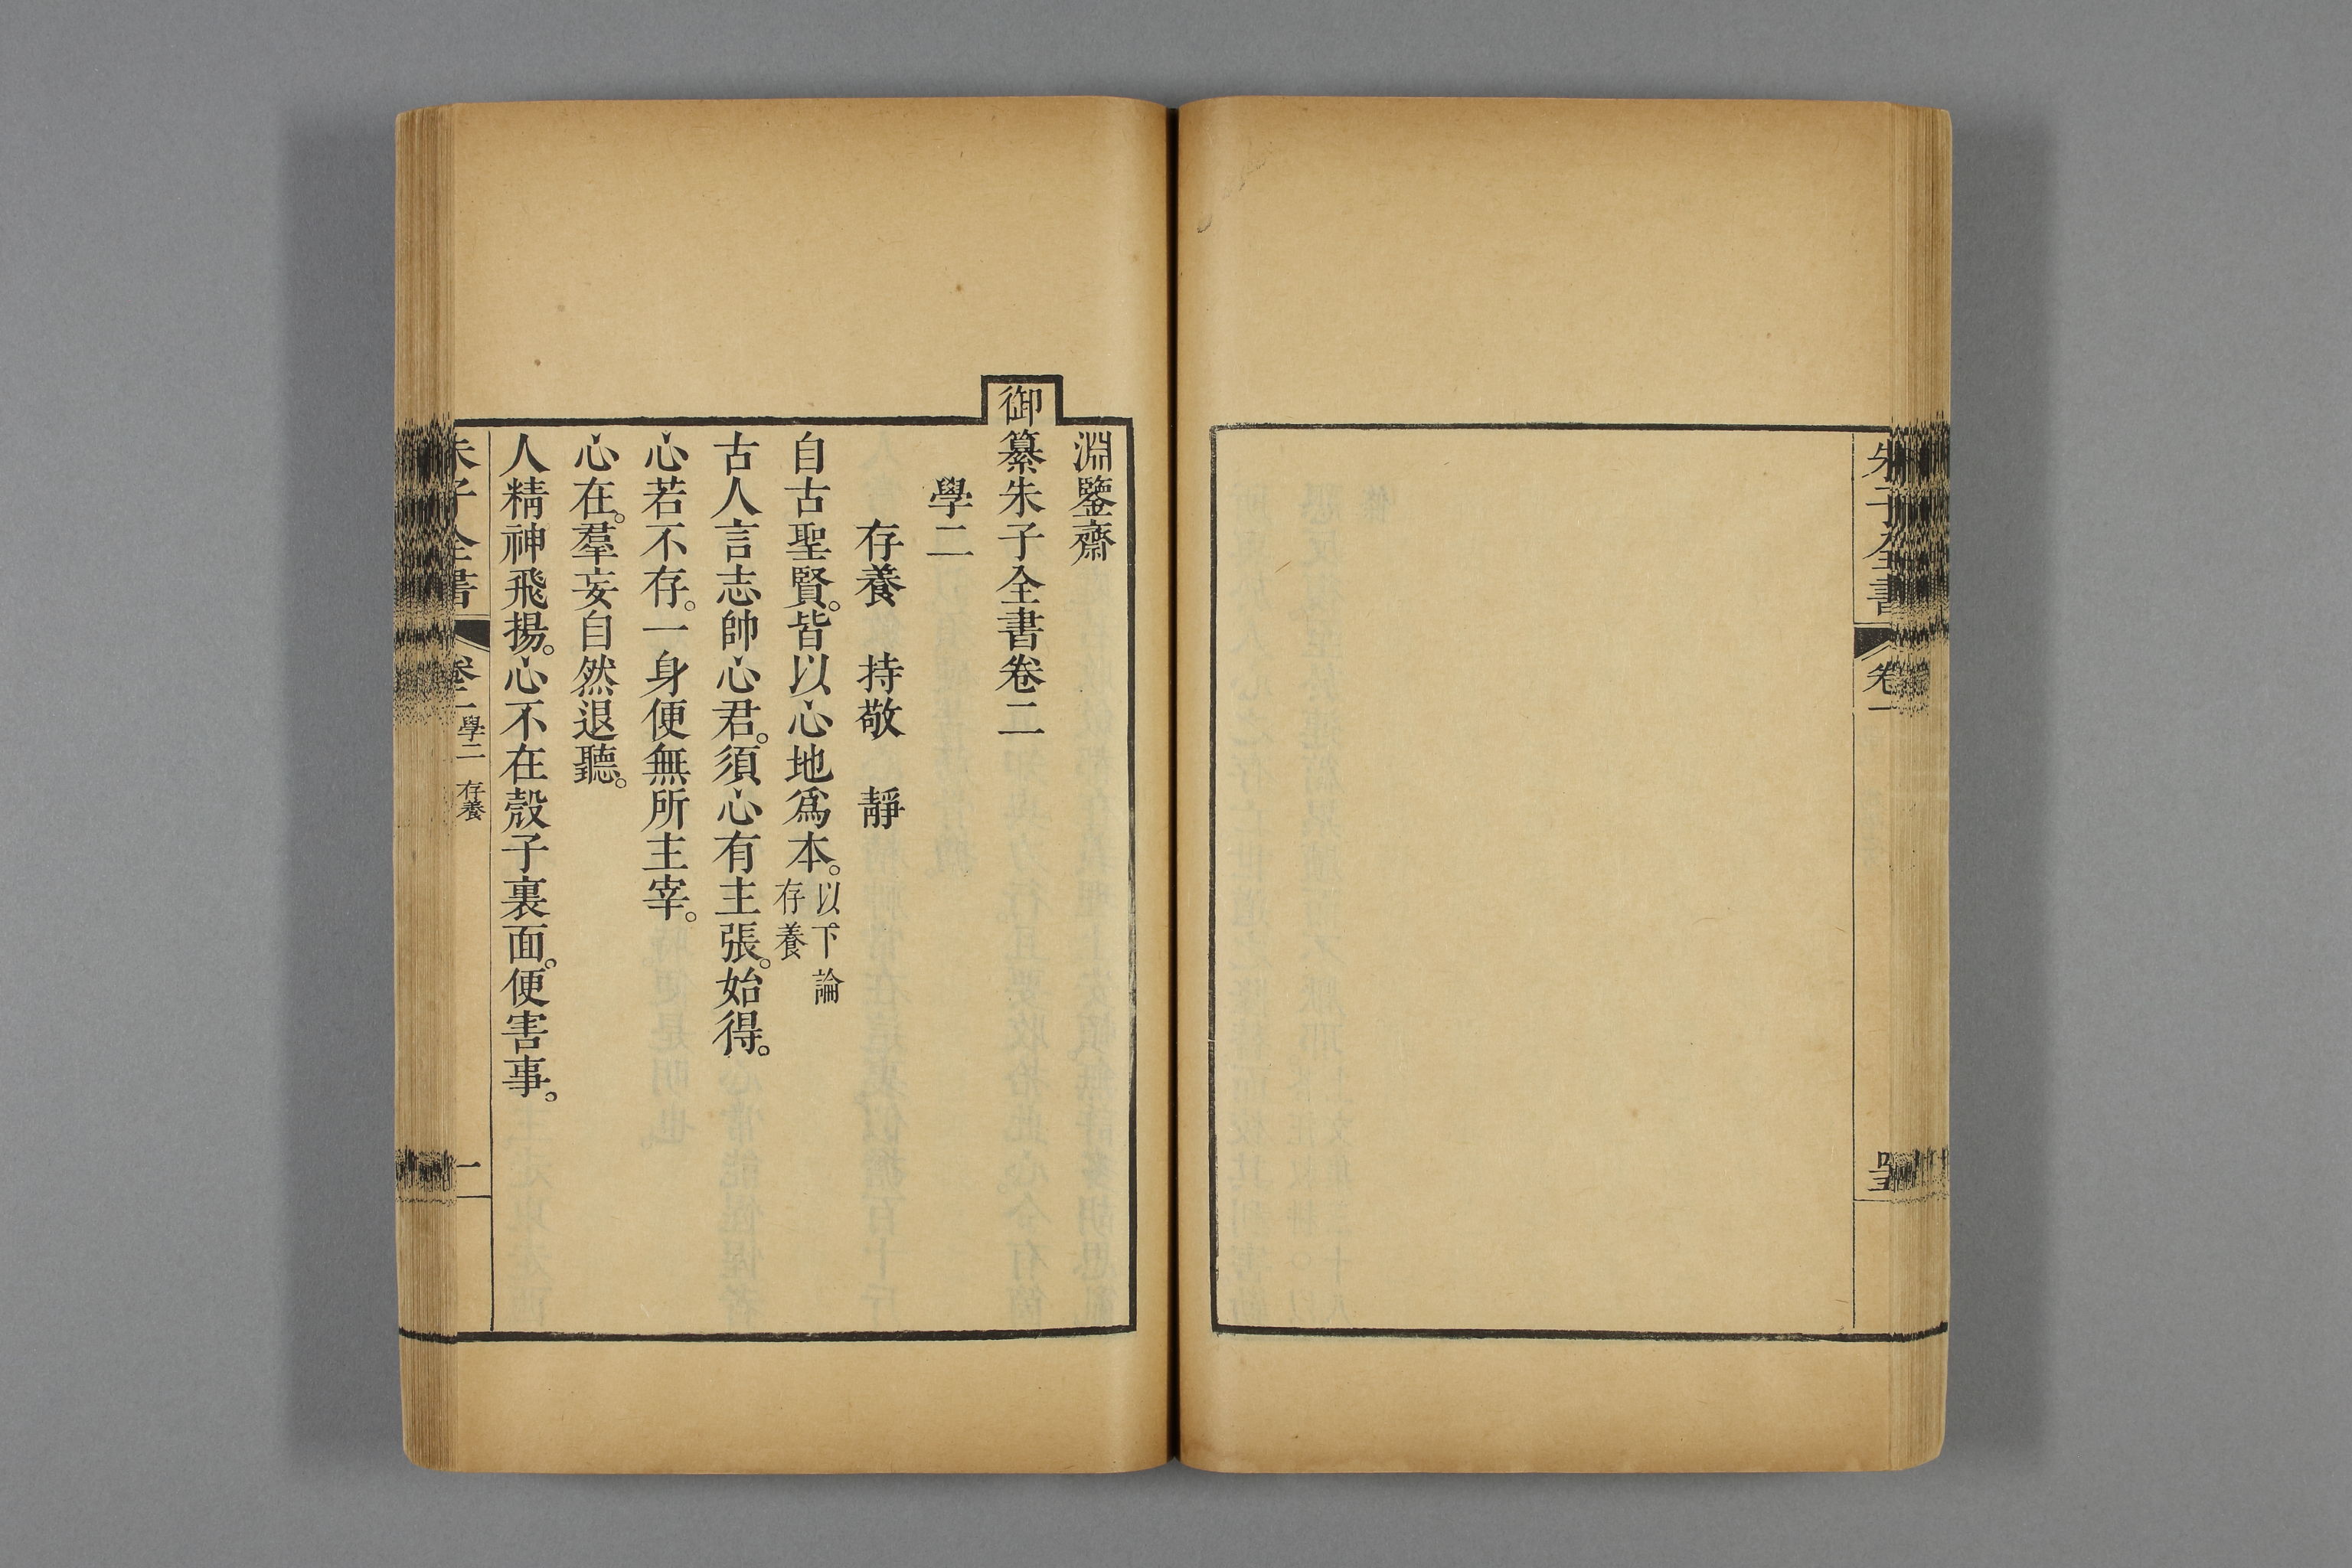 朱子全書
卷一
淵鑒齋
御纂朱子全書卷二
學二
存養　持敬　靜
自古聖賢。皆以心地爲本。以下論存養
古人言志帥心君。須心有主張。始得。
心若不存。一身便無所主宰。
心在。羣妄自然退聽。
人精神飛揚。心不在殼子裏面。便害事。
朱子全書　卷二　學二　存養　一